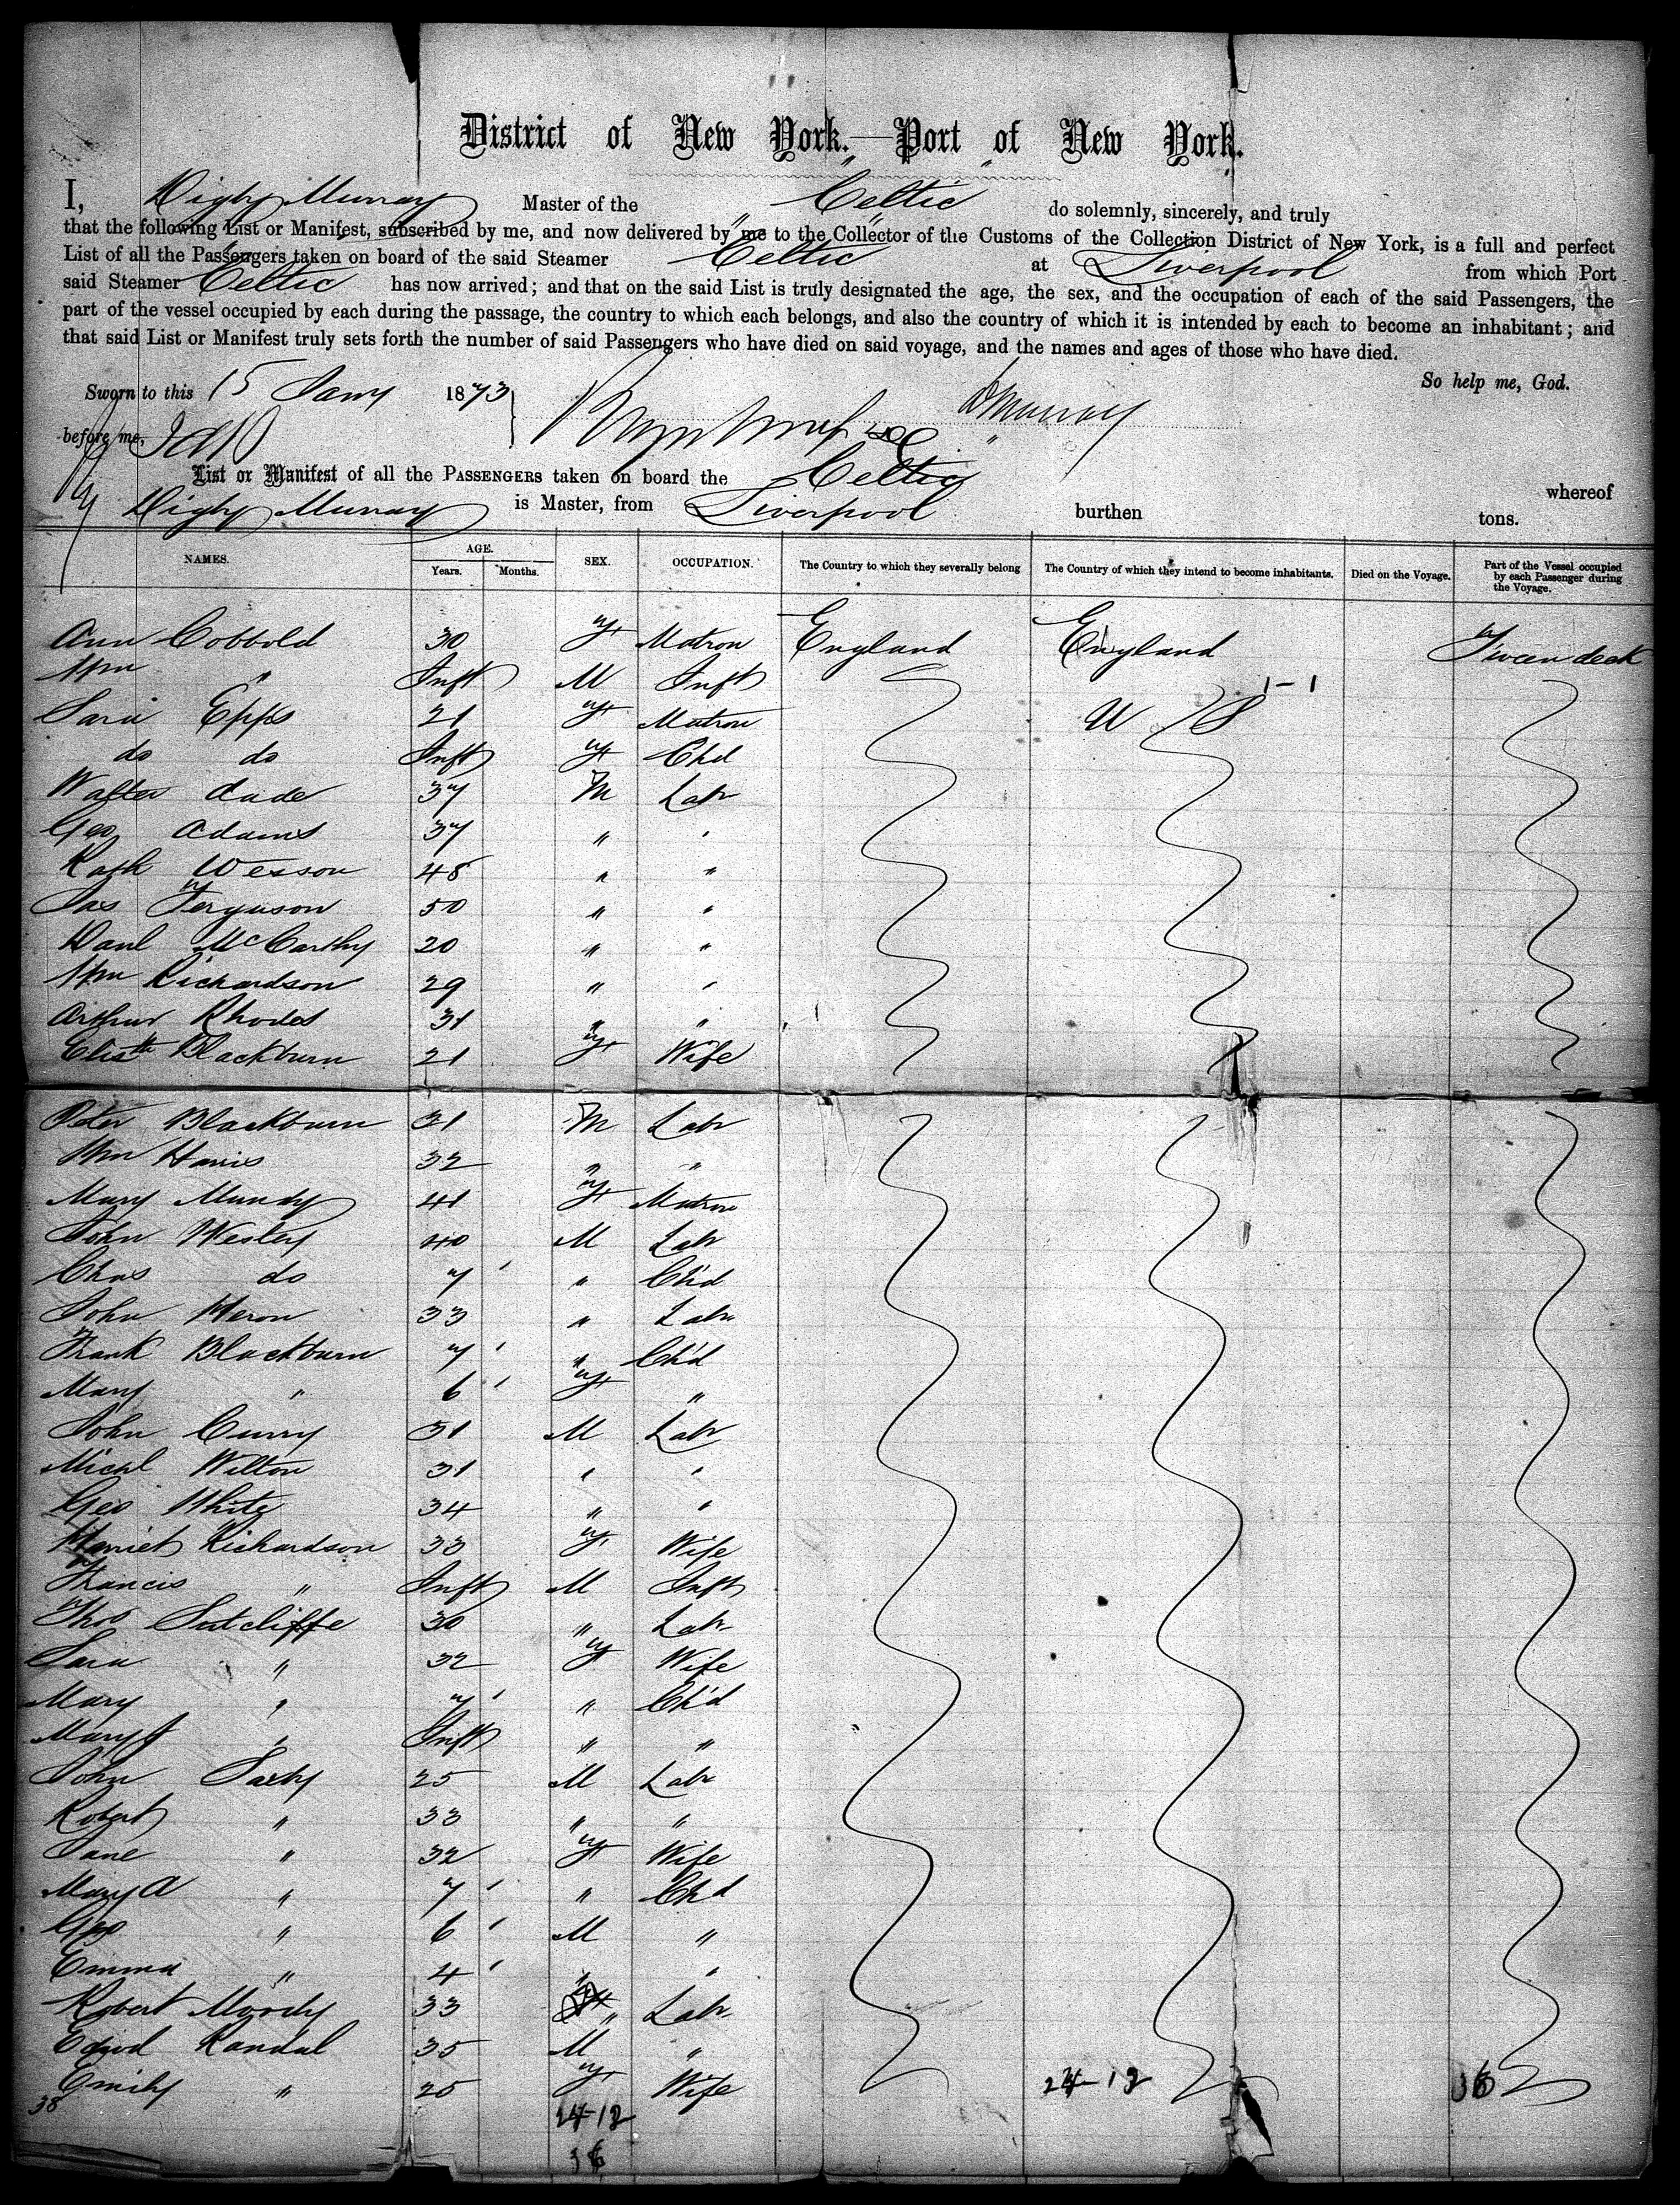 District of New York.—Port of New York.
I, Digby Murray Master of the Celtic do solemnly, sincerely, and truly
that the following List or Manifest, subscribed by me, and now delivered by me to the Collector of the Customs of the Collection District of New York, is a full and perfect
List of all the Passengers taken on board of the said Steamer "Celtic" at Liverpool from which Port
said Steamer "Celtic" has now arrived; and that on the said List is truly designated the age, the sex, and the occupation of each of the said Passengers, the
part of the vessel occupied by each during the passage, the country to which each belongs, and also the country of which it is intended by each to become an inhabitant; and
that said List or Manifest truly sets forth the number of said Passengers who have died on said voyage, and the names and ages of those who have died.
So help me, God.
Sworn to this 15 Jany 1873
D Murray
before me,
List or Manifest of all the PASSENGERS taken on board the "Celtic" whereof
Digby Murray is Master, from Liverpool burthen tons.
NAMES. AGE. SEX. OCCUPATION. The Country to which they severally belong The Country of which they intend to become inhabitants. Died on the Voyage. Part of the Vessel occupied by each Passenger during the Voyage.
Years. Months.
Ann Cobbold 30 F Matron England England Tween deck
Wm " Inft M Inft 1-1
Sara Epps 21 F Matron U S
do do Inft F Chd
Walter Cade 37 M Labr
Geo Adams 37 " "
Ralph Wesson 48 " "
Jas Ferguson 50 " "
Danl McCarthy 20 " "
Wm Richardson 29 " "
Arthur Rhodes 31 " "
Elisth Blackburn 21 F Wife
Peter Blackburn 31 M Labr
Wm Harris 32 " "
Mary Mundy 41 F Matron
John Wesley 40 M Labr
Chas do 7 " Ch'd
John Heron 33 " Labr
Frank Blackburn 7 " Ch'd
Mary " 6 F "
John Curry 31 M Labr
Michl Wilton 31 " "
Geo White 34 " "
Harriet Richardson 33 F Wife
Francis " Inft M Inft
Thos Sutcliffe 30 " Labr
Sara " 32 F Wife
Mary " 7 " Ch'd
Mary J " Inft " "
John 25 M Labr
Robert " 33 " "
Jane " 32 F Wife
Mary A " 7 " Chd
Geo " 6 M "
Emma " 4 " "
Robert Moody 33 " Labr
Edwd Randal 35 M "
Emily " 25 F Wife
38 24-12 24-12 36
36